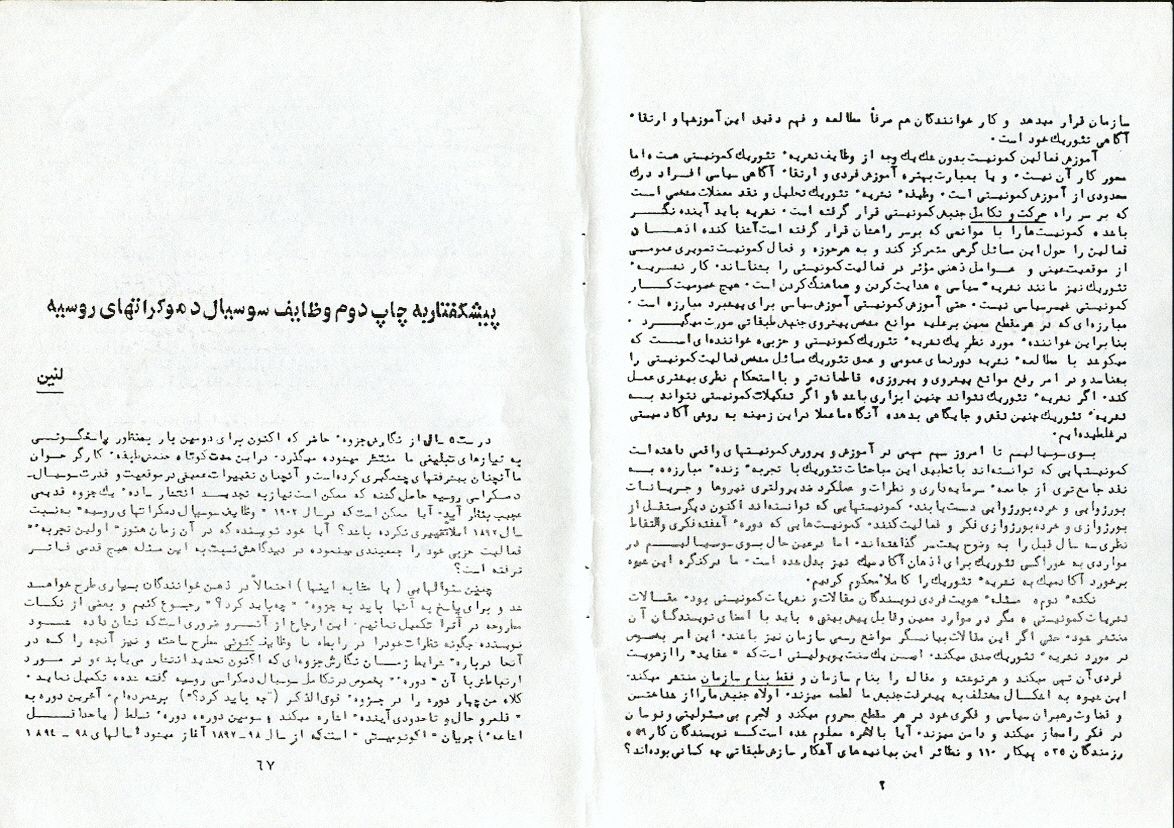 سازمان قرار میدهد و کار خوانندگان هم صرفاً مطالعه و فهم دقیق این آموزشها و ارتقاء
آگاهی تئوریک خود است.
آموزش فعالین کمونیست بدون شک یک وجه از وظایف نشریهٔ تئوریک کمونیستی هست، اما
محور کار آن نیست. و یا بعبارت بهتر، آموزش فردی و ارتقاء آگاهی سیاسی افراد درک
محدودی از آموزش کمونیستی است. وظیفهٔ نشریهٔ تئوریک تحلیل و نقد معضلات مشخصی است
که بر سر راه حرکت و تکامل جنبش کمونیستی قرار گرفته است. نشریه باید آینده‌نگر
باشد، کمونیست‌ها را با موانعی که بر سر راهشان قرار گرفته است آشنا کند، اذهان
فعالین را حول این مسائل گرهی متمرکز کند و به هر حوزه و فعال کمونیست تصویری عمومی
از موقعیت عینی و عوامل ذهنی مؤثر در فعالیت کمونیستی را بشناساند. کار نشریهٔ
تئوریک نیز مانند نشریهٔ سیاسی، هدایت کردن و هماهنگ کردن است. هیچ عمومیت کار
کمونیستی غیرسیاسی نیست. حتی آموزش کمونیستی آموزش سیاسی برای پیشبرد مبارزه است.
مبارزه‌ای که در هر مقطع معین بر علیه موانع مشخص پیشروی جنبش طبقاتی صورت میگیرد.
بنابراین خوانندهٔ مورد نظر یک نشریهٔ تئوریک کمونیستی و حزبی، خواننده‌ای است که
میکوشد با مطالعهٔ نشریه دورنمای عمومی و عمق تئوریک مسائل مشخص فعالیت کمونیستی را
بشناسد و در امر رفع موانع پیشروی و پیروزی، قاطعانه‌تر و با استحکام نظری بهتری عمل
کند. اگر نشریهٔ تئوریک نتواند چنین ابزاری باشد، و اگر تشکیلات کمونیستی نتواند به
نشریهٔ تئوریک چنین نقش و جایگاهی بدهد، آنگاه ما عملا در این زمینه به روشی آکادمیستی
در غلطیده‌ایم.
بسوی سوسیالیسم تا امروز سهم مهمی در آموزش و پرورش کمونیستهای واقعی داشته است
کمونیستهایی که توانسته‌اند با تطبیق این مباحثات تئوریک با تجربهٔ زندهٔ مبارزه به
نقد جامع‌تری از جامعهٔ سرمایه‌داری و نظرات و عملکرد ضدپرولتری نیروها و جریانات
بورژوایی و خرده‌بورژوایی دست یابند. کمونیستهایی که توانسته‌اند اکنون دیگر مستقل از
بورژوازی و خرده‌بورژوازی فکر و فعالیت کنند. کمونیست‌هایی که دورهٔ آشفته‌فکری و التقاط
نظری سه سال قبل را به وضوح پشت سر گذاشته‌اند. اما در عین حال بسوی سوسیالیسم در
مواردی به خوراکی تئوریک برای اذهان آکادمیک نیز بدل شده است. ما در کنگره این شیوه
برخورد آکادمیک به نشریهٔ تئوریک را کاملا محکوم کردیم.
نکتهٔ دوم، مسئلهٔ هویت فردی نویسندگان مقالات و نشریات کمونیستی بود. مقالات
نشریات کمونیستی، مگر در موارد معین و قابل پیش‌بینی، باید با امضای نویسندگان آن
منتشر شود. حتی اگر این مقالات بیانگر مواضع رسمی سازمان نیز باشند. این امر بخصوص
در مورد نشریهٔ تئوریک صدق میکند. این یک سنت پوپولیستی است که "عقاید" را از هویت
فردی آن تهی میکند و هر نوشته و مقاله را بنام سازمان و فقط بنام سازمان منتشر میکند.
این شیوه به اشکال مختلف به پیشرفت جنبش ما لطمه میزند. اولا، جنبش ما را از شناختن
و قضاوت رهبران سیاسی و فکری خود در هر مقطع محروم میکند و لاجرم بی‌مسئولیتی و نوسان
در فکر را مجاز میکند و دامن میزند. آیا بالاخره معلوم شده است که نویسندگان کار ۵۹،
رزمندگان ۳۵، پیکار ۱۱۰ و نظائر این بیانیه‌های آشکار سازش طبقاتی چه کسانی بوده‌اند؟
۲
پیشگفتار به چاپ دوم وظایف سوسیال دموکراتهای روسیه
لنین
درست ۵ سال از نگارش جزوهٔ حاضر که اکنون برای دومین بار بمنظور پاسخگوئی
به نیازهای تبلیغی ما منتشر میشود میگذرد. در این مدت کوتاه جنبش طبقهٔ کارگر جوان
ما آنچنان پیشرفتهای چشمگیری کرده است و آنچنان تغییرات عمیقی در موقعیت و قدرت سوسیال-
دمکراسی روسیه حاصل گشته که ممکن است نیاز به تجدید انتشار سادهٔ یک جزوه قدیمی
عجیب بنظر آید. آیا ممکن است که در سال ۱۹۰۲ "وظایف سوسیال دمکراتهای روسیه" به نسبت
سال ۱۸۹۷ اصلا تغییری نکرده باشد؟ آیا خود نویسنده که در آن زمان هنوز "اولین تجربهٔ"
فعالیت حزبی خود را جمعبندی مینموده در دیدگاهش نسبت به این مسئله هیچ قدمی فراتر
نرفته است؟
چنین سئوالهایی (یا مشابه اینها) احتمالاً در ذهن خوانندگان بسیاری طرح خواهد
شد و برای پاسخ به آنها باید به جزوهٔ "چه باید کرد؟" رجوع کنیم و بعضی از نکات
مطروحه در آنرا تکمیل نمائیم. این ارجاع از آنرو ضروری است که نشان داده شود
نویسنده چگونه نظرات خود را در رابطه با وظایف کنونی مطرح ساخته و نیز آنچه را که در
آنجا دربارهٔ شرایط زمان نگارش جزوه‌ای که اکنون تجدید انتشار می‌یابد، و در مورد
ارتباط اثر با آن "دورهٔ" بخصوص در تکامل سوسیال دمکراسی روسیه گفته شده، تکمیل نماید.
کلا من چهار دوره را در جزوهٔ فوق‌الذکر ("چه باید کرد؟") برشمرده‌ام. آخرین دوره به
"قلمرو حال و تا حدودی آینده" اشاره میکند، سومین دوره، دورهٔ تسلط (یا حداقل
اشاعهٔ) جریان "اکونومیستی" است که از سال ۹۸-۱۸۹۷ آغاز میشود؛ سالهای ۹۸-۱۸۹۴
۶۷